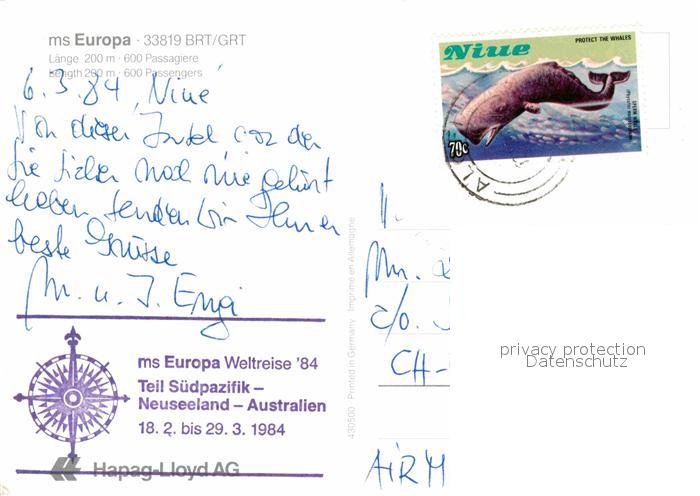 ms Europa · 33819 BRT/GRT
Länge 200 m · 600 Passagiere
Length 200 m · 600 Passengers
6.3.84 Niue
Von dieser Insel von der
Sie sicher noch nie gehört
haben senden wir Ihnen
beste Grüsse
M. u. J. Engi
ms Europa Weltreise '84
Teil Südpazifik –
Neuseeland – Australien
18. 2. bis 29. 3. 1984
Hapag-Lloyd AG
430500 Printed in Germany Imprimé en Allemagne
Niue
PROTECT THE WHALES
SPERM WHALE
70c
AL
c/o.
CH-
AIRM
privacy protection
Datenschutz